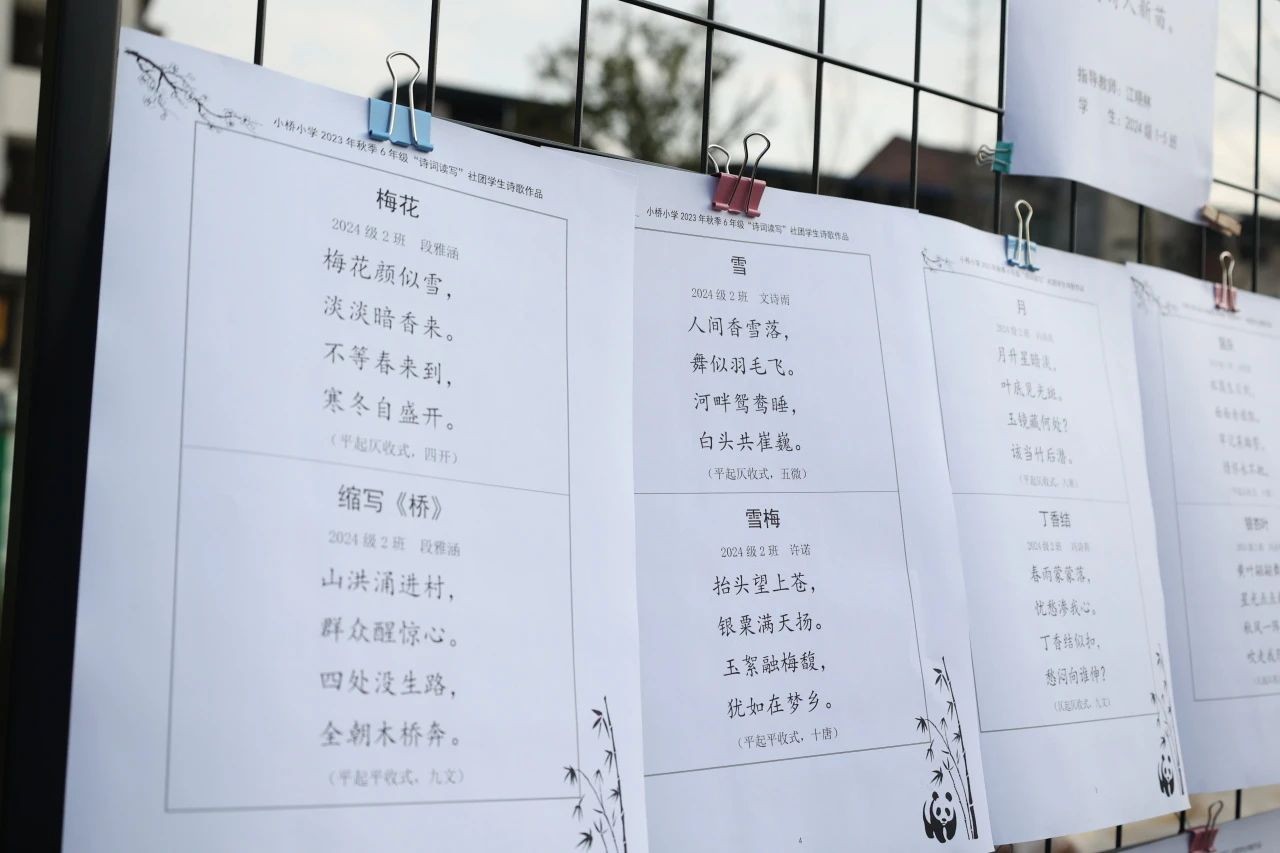 小桥小学2023年秋季6年级“诗词读写”社团学生诗歌作品
梅花
2024级2班 段雅涵
梅花颜似雪，
淡淡暗香来。
不等春来到，
寒冬自盛开。
（平起仄收式，四开）
缩写《桥》
2024级2班 段雅涵
山洪涌进村，
群众醒惊心。
四处没生路，
全朝木桥奔。
（平起平收式，九文）
小桥小学2023年秋季6年级“诗词读写”社团学生诗歌作品
雪
2024级2班 文诗雨
人间香雪落，
舞似羽毛飞。
河畔鸳鸯睡，
白头共崔巍。
（平起仄收式，五微）
雪梅
2024级2班 许诺
抬头望上苍，
银粟满天扬。
玉絮融梅馥，
犹如在梦乡。
（平起平收式，十唐）
4
月
2024级2班
月升星暗淡，
叶底见光斑。
玉镜藏何处？
该当竹后潜。
丁香结
2024级2班
春雨蒙蒙落，
忧愁渗我心。
丁香结似扣，
愁闷向谁伸？
（仄起仄收式，九文）
人新苗。
指导教师：江晓林
学 生：2024级1-5班
黄叶
星光点点
秋风一阵